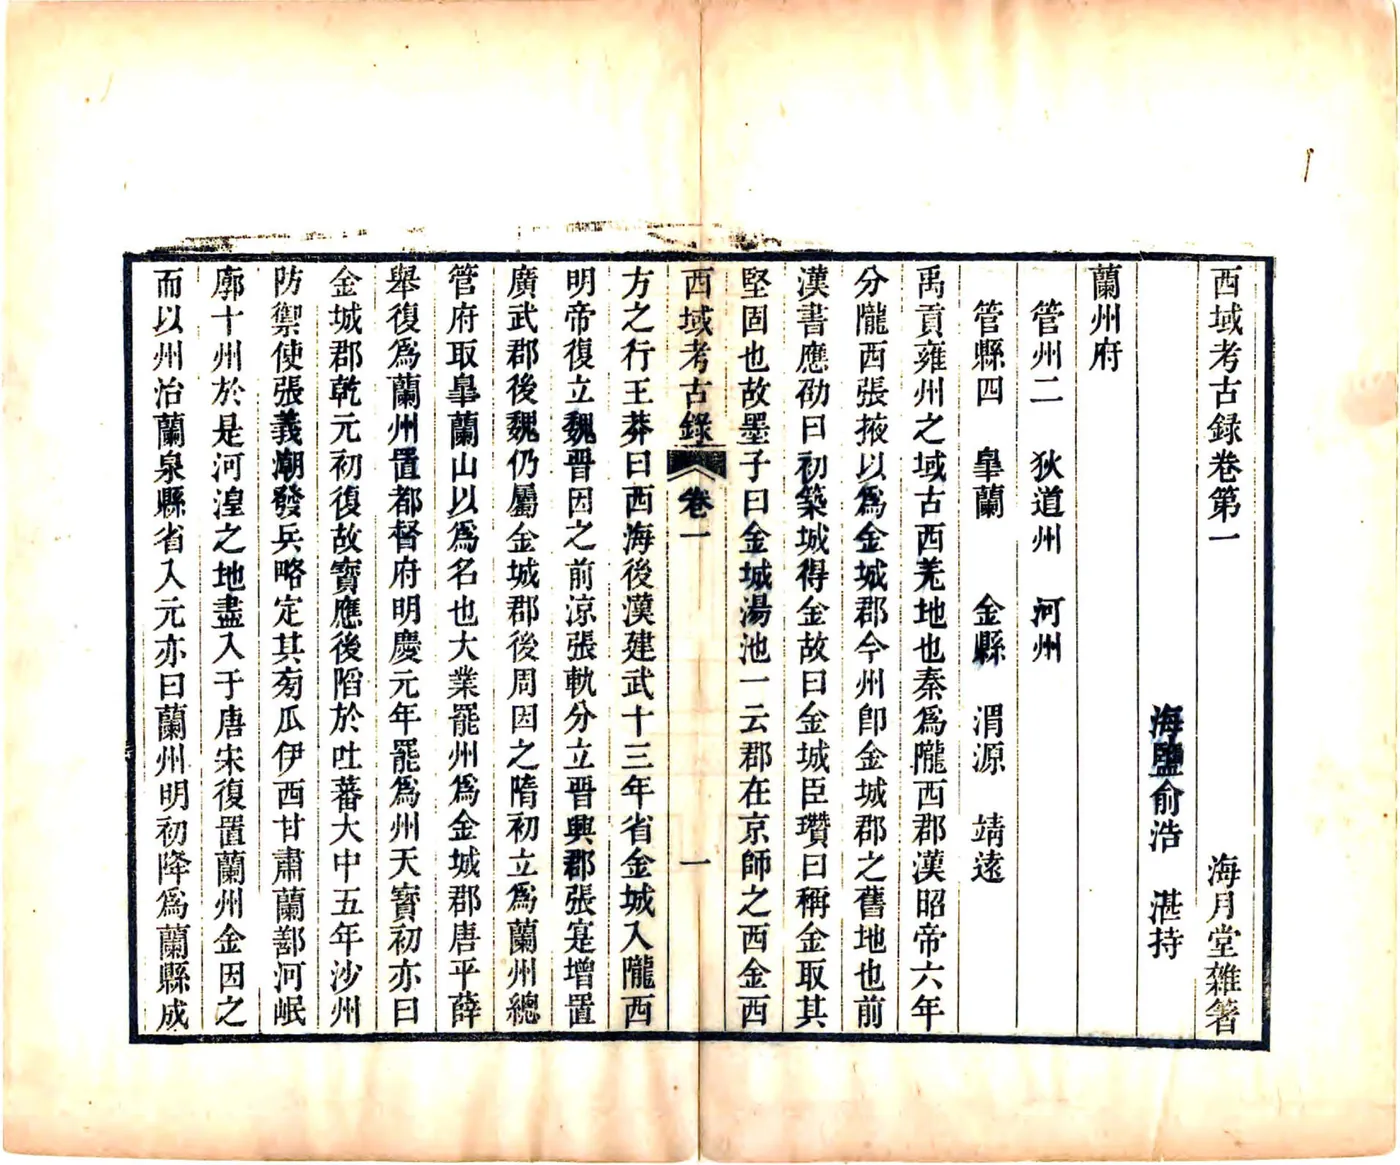 西域考古錄卷第一　海月堂雜著
海鹽俞浩　湛持
蘭州府
管州二　狄道州　河州
管縣四　皐蘭　金縣　渭源　靖遠
禹貢雍州之域古西羌地也秦爲隴西郡漢昭帝六年
分隴西張掖以爲金城郡今州卽金城郡之舊地也前
漢書應劭曰初築城得金故曰金城臣瓚曰稱金取其
堅固也故墨子曰金城湯池一云郡在京師之西金西
西域考古錄　卷一　一
方之行王莽曰西海後漢建武十三年省金城入隴西
明帝復立魏晉因之前凉張軌分立晉興郡張寔增置
廣武郡後魏仍屬金城郡後周因之隋初立爲蘭州總
管府取皐蘭山以爲名也大業罷州爲金城郡唐平薛
舉復爲蘭州置都督府明慶元年罷爲州天寶初亦曰
金城郡乾元初復故寶應後陷於吐蕃大中五年沙州
防禦使張義潮發兵略定其旁瓜伊西甘肅蘭鄯河岷
廓十州於是河湟之地盡入于唐宋復置蘭州金因之
而以州治蘭泉縣省入元亦曰蘭州明初降爲蘭縣成